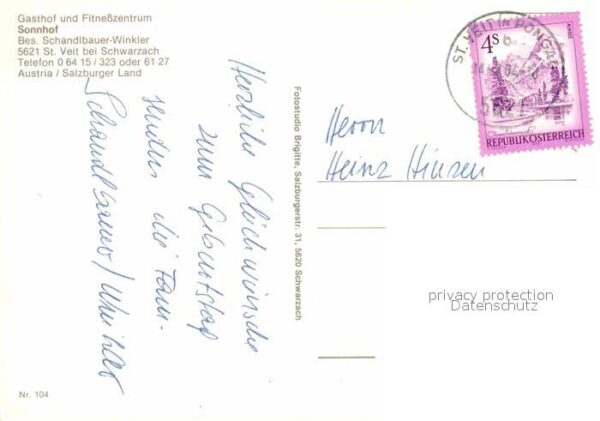 Gasthof und Fitneßzentrum
Sonnhof
Bes. Schandlbauer-Winkler
5621 St. Veit bei Schwarzach
Telefon 0 64 15 / 323 oder 61 27
Austria / Salzburger Land
Herzliche Glückwünsche
zum Geburtstag
senden die Fam.
Schandlbauer/Winkler
Nr. 104
Fotostudio Brigitte, Salzburgerstr. 31, 5620 Schwarzach
ST. VEIT IM PONGAU
5621
4S
REPUBLIK ÖSTERREICH
Herrn
Heinz Hinzen
privacy protection
Datenschutz